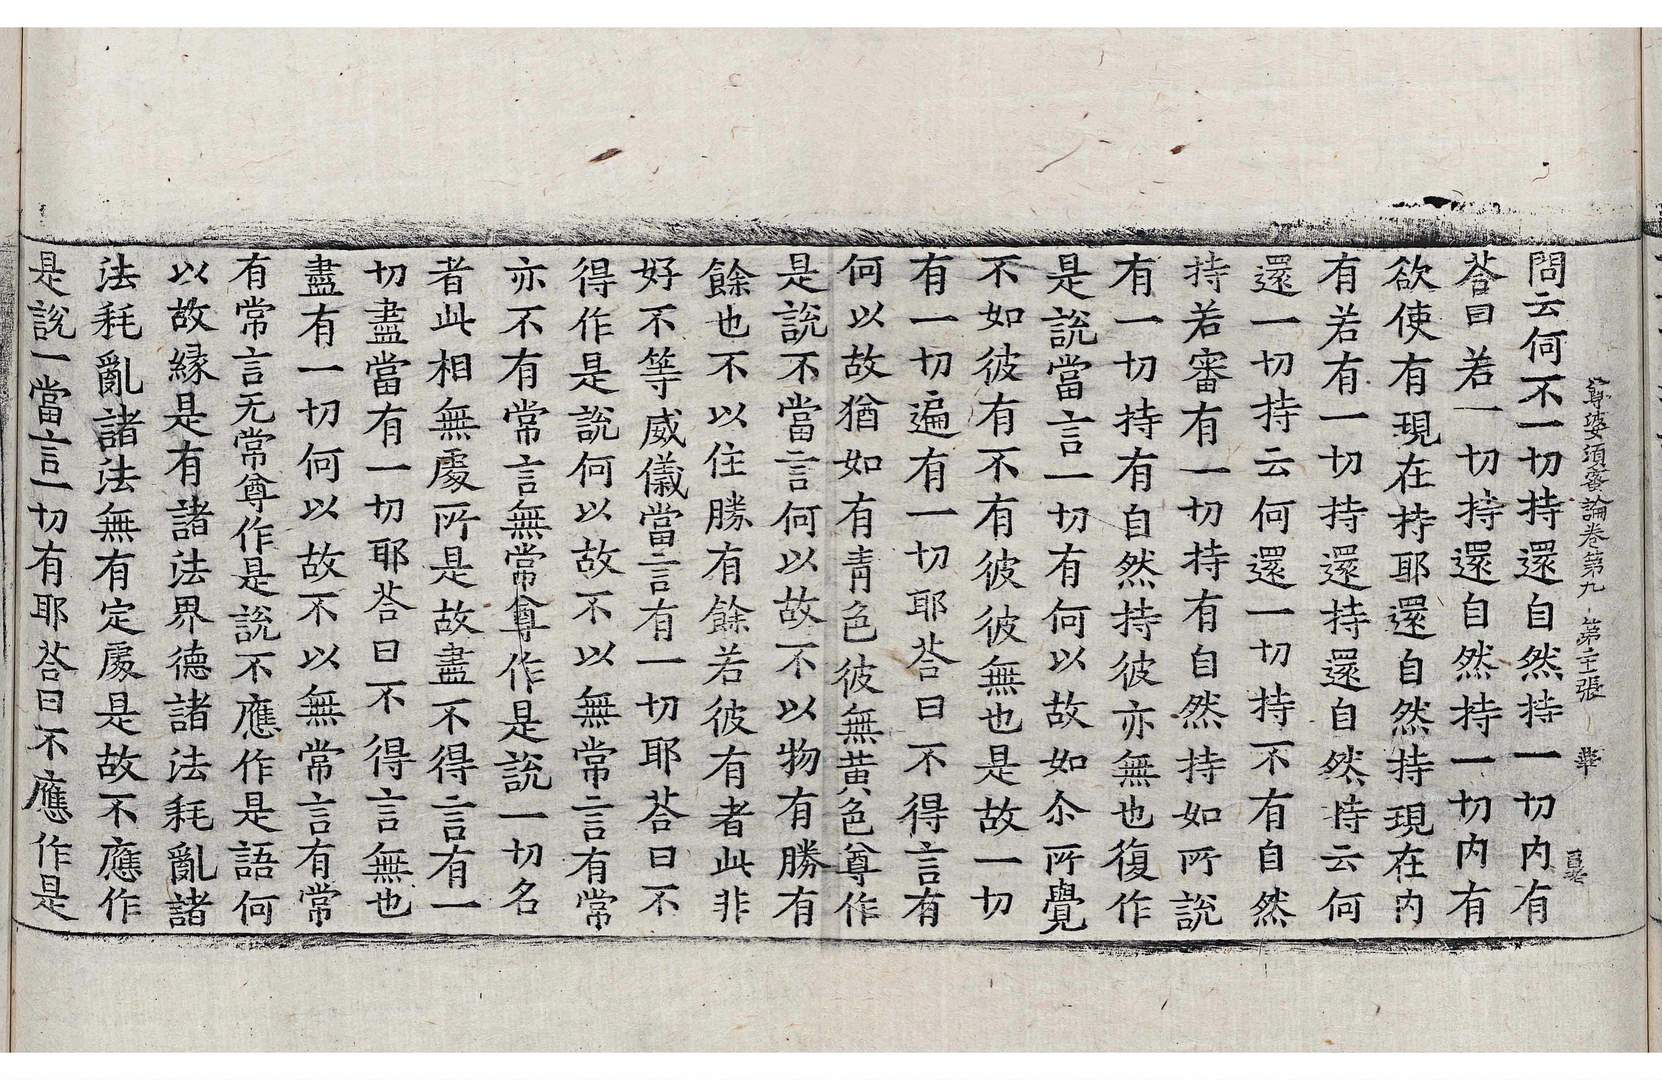 尊婆須蜜論卷第九 第主張 華
問云何不一切持還自然持一切内有
荅曰若一切持還自然持一切内有
欲使有現在持耶還自然持現在内
有若有一切持還持還自然持云何
還一切持云何還一切持不有自然
持若審有一切持有自然持如所說
有一切持有自然持彼亦無也復作
是說當言一切有何以故如尒所覺
不如彼有不有彼彼無也是故一切
有一切遍有一切耶荅曰不得言有
何以故猶如有青色彼無黃色尊作
是說不當言何以故不以物有勝有
餘也不以住勝有餘若彼有者此非
好不等威儀當言有一切耶荅曰不
得作是說何以故不以無常言有常
亦不有常言無常尊作是說一切名
者此相無處所是故盡不得言有一
切盡當有一切耶荅曰不得言無也
盡有一切何以故不以無常言有常
有常言无常尊作是說不應作是語何
以故緣是有諸法界德諸法耗亂諸
法耗亂諸法無有定處是故不應作
是說一當言一切有耶荅曰不應作是